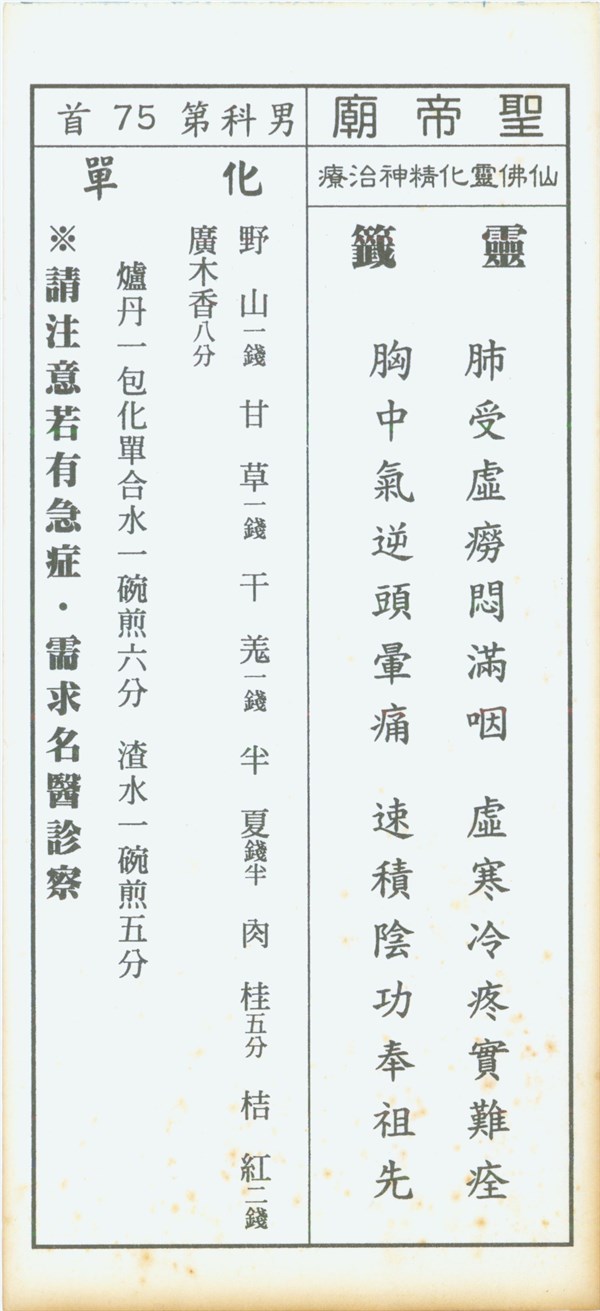 聖帝廟
仙佛靈化精神治療
靈籤
肺受虛癆悶滿咽　虛寒冷疼實難痊
胸中氣逆頭暈痛　速積陰功奉祖先
男科第75首
化單
野山一錢　甘草一錢　干羗一錢　半夏錢半　肉桂五分　桔紅二錢
廣木香八分
爐丹一包化單合水一碗煎六分　渣水一碗煎五分
※請注意若有急症・需求名醫診察